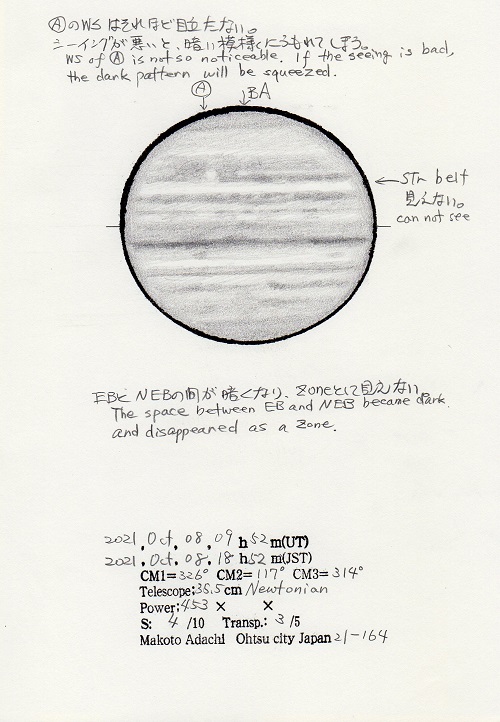 ⒶのWSはそれほど目立たない。
シーイングが悪いと、暗い模様にうもれてしまう。
WS of Ⓐ is not so noticeable. If the seeing is bad,
the dark pattern will be squeezed.
Ⓐ BA
STr belt
見えない。
can not see
EBとNEBの間が暗くなり、Zoneとして見えない。
The space between EB and NEB became dark.
and disappeared as a zone.
2021, Oct, 08, 09 h 52 m(UT)
2021, Oct, 08, 18 h 52 m(JST)
CM1=326° CM2=117° CM3=314°
Telescope:35.5cm Newtonian
Power:453 × ×
S: 4 /10 Transp.: 3 /5
Makoto Adachi Ohtsu city Japan 21-164